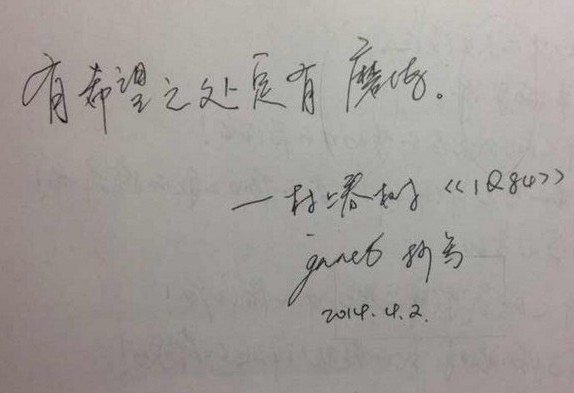 有希望之处定有磨练。
—村上春树《1Q84》
janet 抄写
2014.4.2.